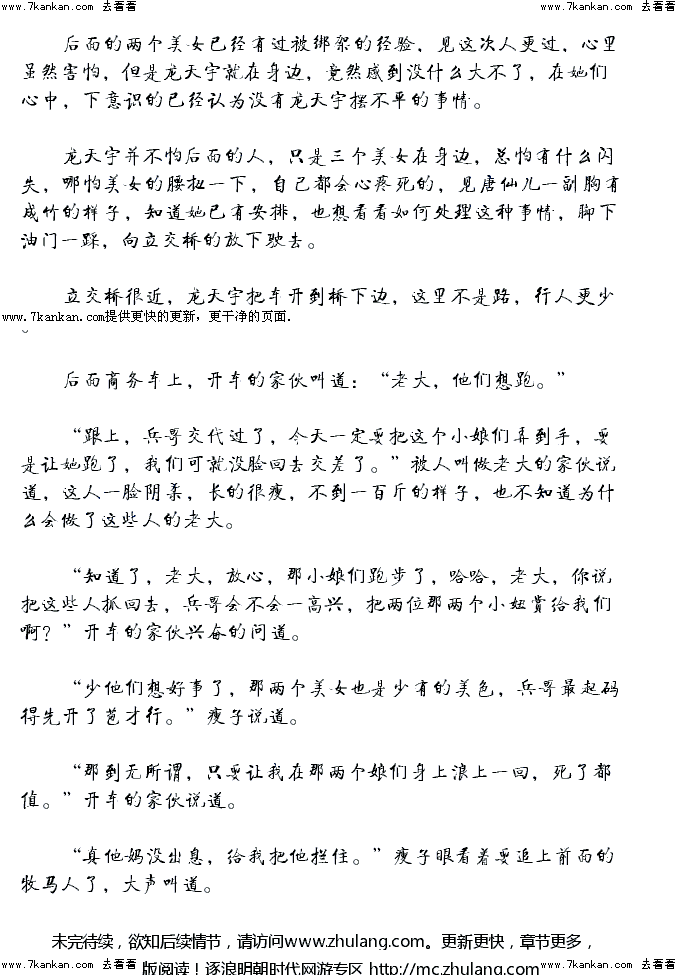 www.7kankan.com 去看看 www.7kankan.com 去看看
后面的两个美女已经有过被绑架的经验，见这次人更过，心里
虽然害怕，但是龙天宇就在身边，竟然感到没什么大不了，在她们
心中，下意识的已经认为没有龙天宇摆不平的事情。
龙天宇并不怕后面的人，只是三个美女在身边，总怕有什么闪
失，哪怕美女的腰扭一下，自己都会心疼死的，见唐仙儿一副胸有
成竹的样子，知道她已有安排，也想看看如何处理这种事情，脚下
油门一踩，向立交桥的放下驶去。
立交桥很近，龙天宇把车开到桥下边，这里不是路，行人更少
www.7kankan.com提供更快的更新，更干净的页面.
。
后面商务车上，开车的家伙叫道：“老大，他们想跑。”
“跟上，兵哥交代过了，今天一定要把这个小娘们弄到手，要
是让她跑了，我们可就没脸回去交差了。”被人叫做老大的家伙说
道，这人一脸阴柔，长的很瘦，不到一百斤的样子，也不知道为什
么会做了这些人的老大。
“知道了，老大，放心，那小娘们跑步了，哈哈，老大，你说
把这些人抓回去，兵哥会不会一高兴，把两位那两个小妞赏给我们
啊？”开车的家伙兴奋的问道。
“少他们想好事了，那两个美女也是少有的美色，兵哥最起码
得先开了苞才行。”瘦子说道。
“那到无所谓，只要让我在那两个娘们身上浪上一回，死了都
值。”开车的家伙说道。
“真他妈没出息，给我把他拦住。”瘦子眼看着要追上前面的
牧马人了，大声叫道。
未完待续，欲知后续情节，请访问www.zhulang.com。更新更快，章节更多，
www.7kankan.com 去看看 版阅读！逐浪明朝时代网游专区 http://mc.zhulang.com www.7kankan.com 去看看